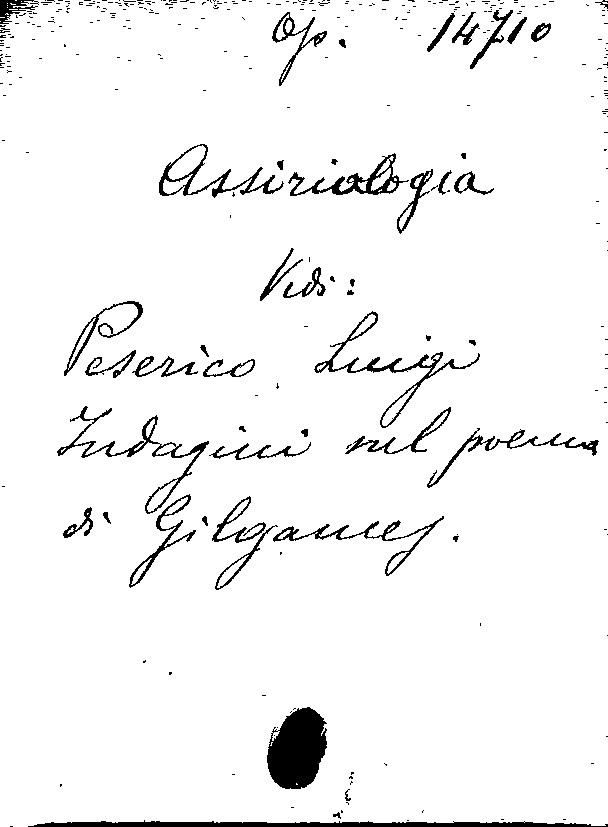 Op. 14710
Assiriologia
Vedi:
Peserico Luigi
Indagini sul poema
di Gilgames.